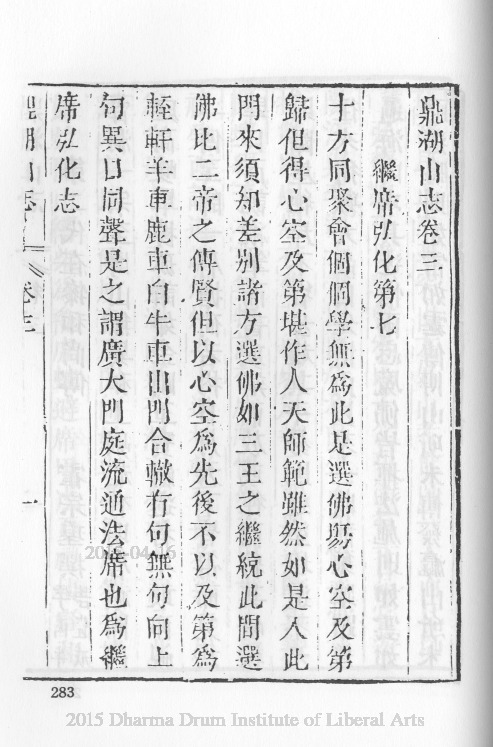 鼎湖山志卷三
繼席弘化第七
十方同聚會個個學無為此是選佛場心空及第
歸但得心空及第堪作人天師範雖然如是入此
門來須知差別諸方選佛如三王之繼統此間選
佛比二帝之傳賢但以心空為先後不以及第為
輊軒羊車鹿車白牛車出門合轍有句無句向上
句異口同聲是之謂廣大門庭流通法席也為繼
席弘化志
鼎湖山志 卷三 一
283
2015 Dharma Drum Institute of Liberal Arts